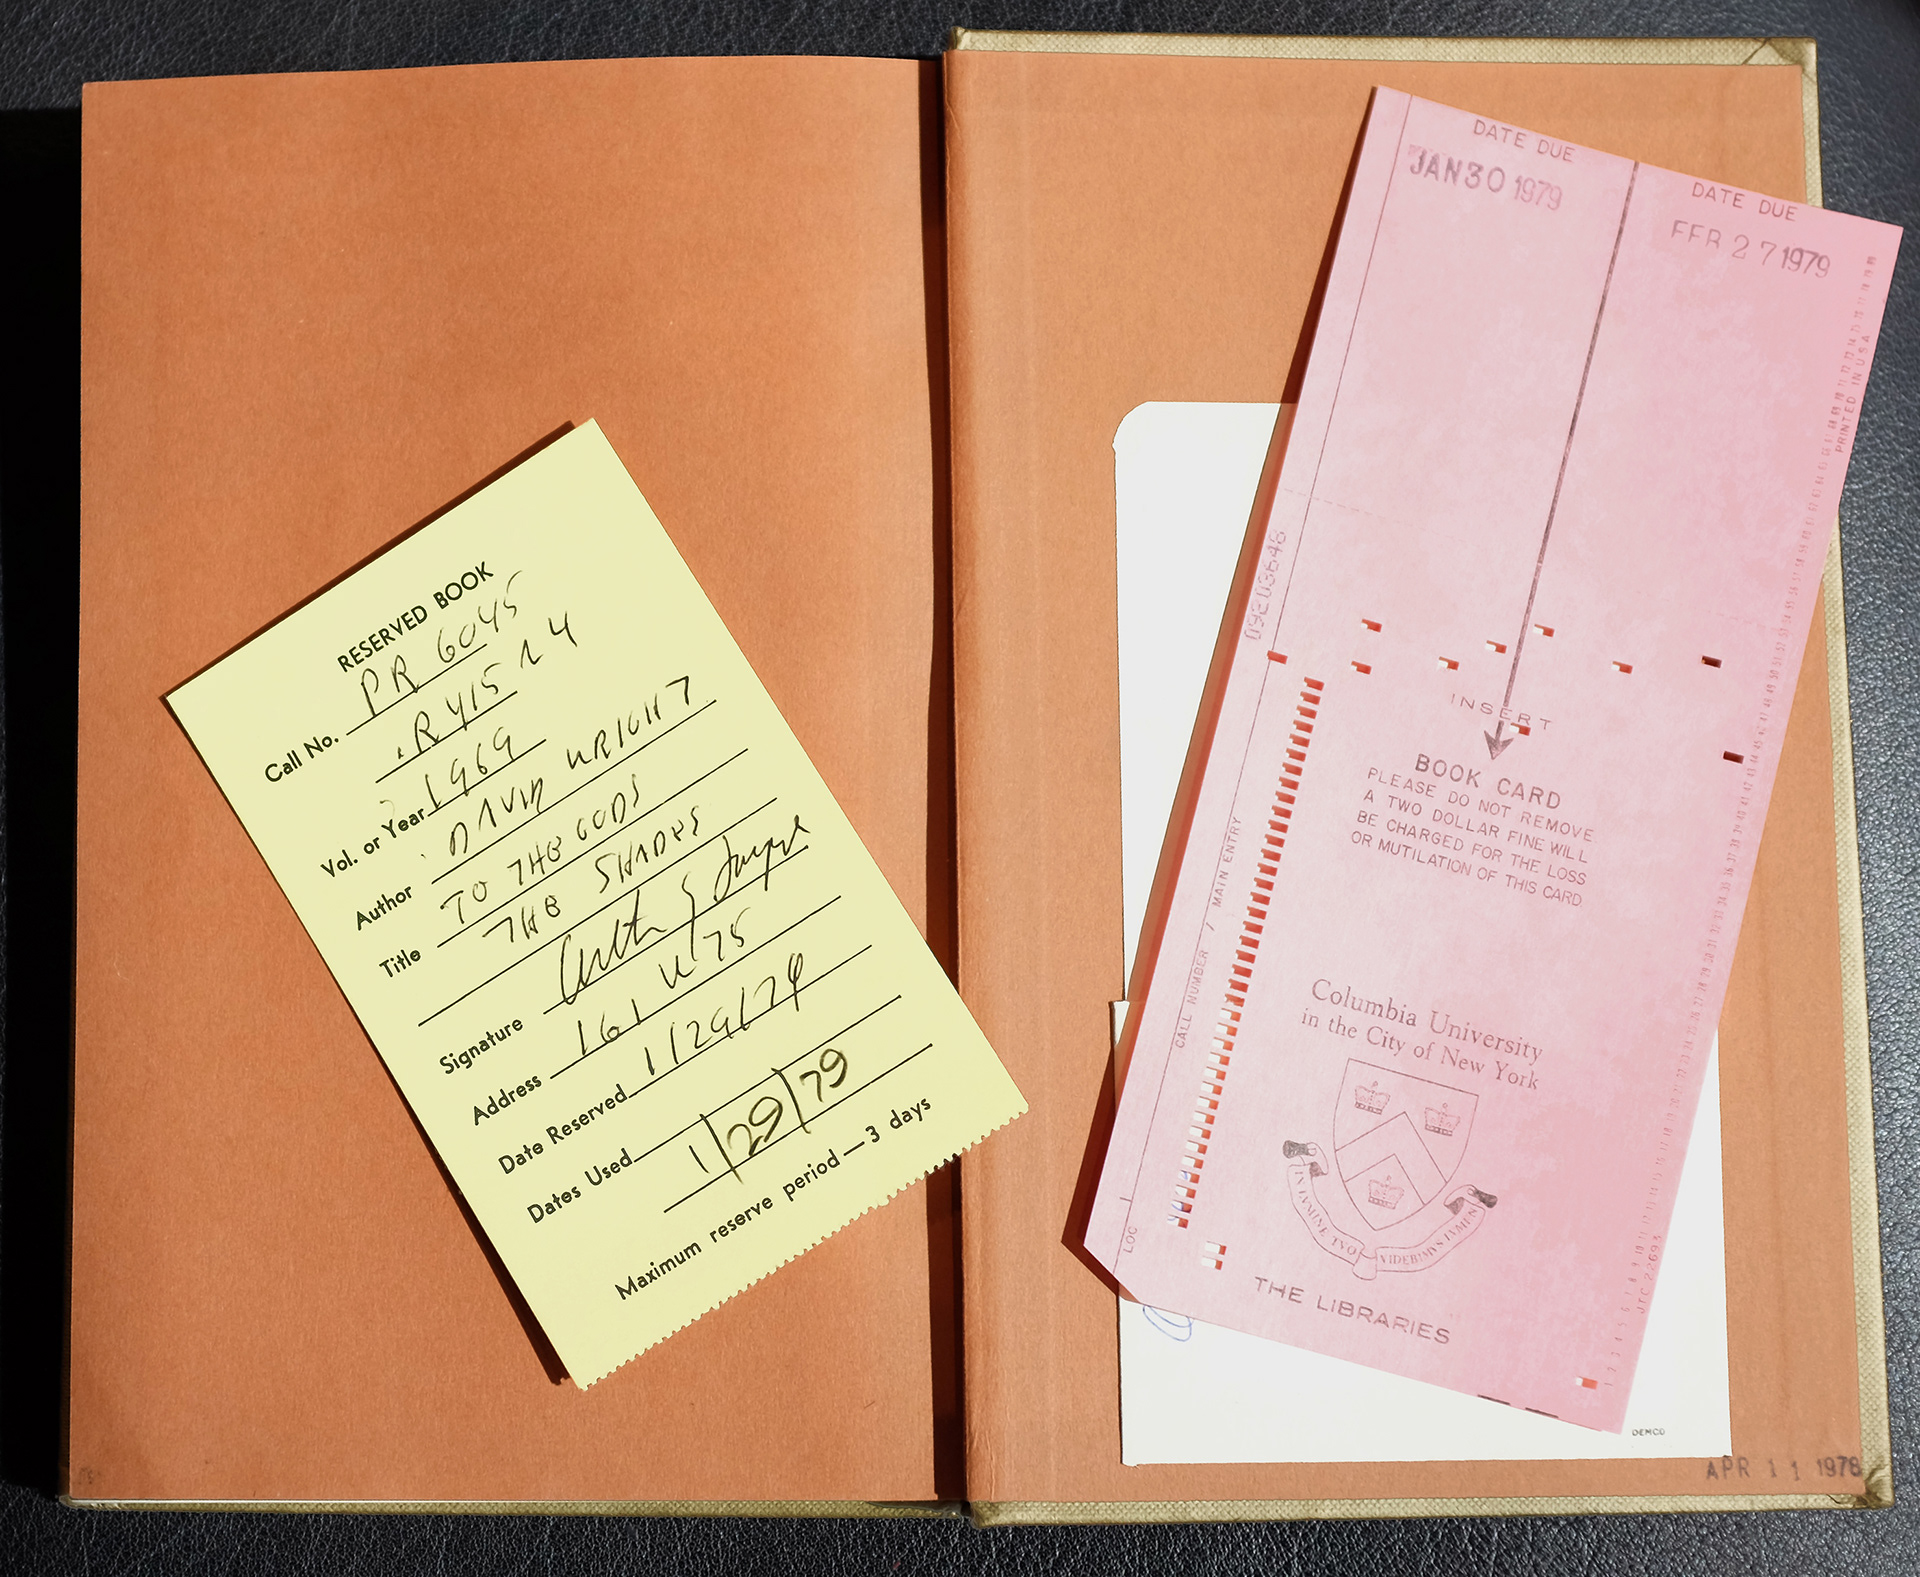 RESERVED BOOK
Call No. PR 6045
.R415 Z4
Vol. or Year 1969
Author DAVID WRIGHT
Title TO THE GODS
THE SHADES
Signature
Address 161 W 75
Date Reserved 1/29/79
Dates Used 1/29/79
Maximum reserve period—3 days
DATE DUE
JAN 30 1979
DATE DUE
FEB 27 1979
PRINTED IN U S A
09203648
INSERT
BOOK CARD
PLEASE DO NOT REMOVE
A TWO DOLLAR FINE WILL
BE CHARGED FOR THE LOSS
OR MUTILATION OF THIS CARD
LOC
CALL NUMBER / MAIN ENTRY
Columbia University
in the City of New York
IN LVMINE TVO VIDEBIMVS LVMEN
THE LIBRARIES
JTC 22693
DEMCO
APR 11 1978